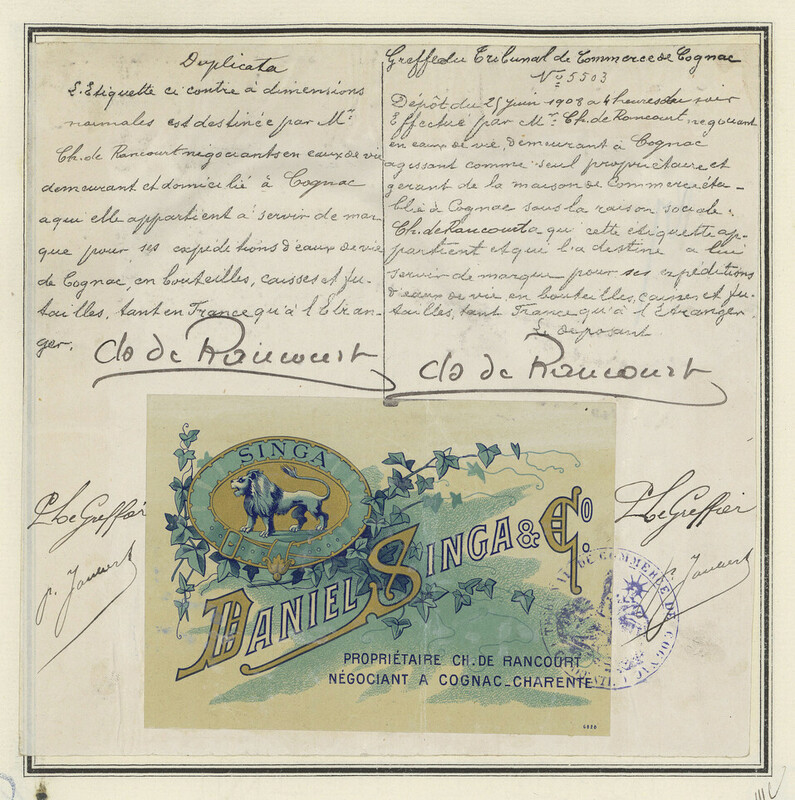 Duplicata
L'Etiquette ci contre à dimensions
normales est destinée par Mr
Ch. de Rancourt négociants en eaux de vie
demeurant et domicilié à Cognac
a qui elle appartient à servir de mar
que pour ses expéditions d'eaux de vie
de Cognac, en bouteilles, caisses et fu-
tailles, tant en France qu'à l'Etran-
ger.
Ch de Rancourt
Greffe du Tribunal de Commerce de Cognac
No 5503
Dépôt du 25 juin 1908 à 4 heures du soir
Effectué par Mr. Ch. de Rancourt negociant
en eaux de vie, demeurant à Cognac
agissant comme seul propriétaire et
gérant de la maison de Commerce éta-
blie à Cognac sous la raison sociale:
Ch. de Rancourt a qui cette étiquette ap-
partient et qui l'a destine a lui
servir de marque pour ses expéditions
d'eaux de vie en bouteilles, caisses et fu-
tailles, tant France qu'à l'Etranger
Le deposant
Ch de Rancourt
P. Le Greffier
p. Jaubert
SINGA
DANIEL SINGA & Co.
PROPRIÉTAIRE CH. DE RANCOURT
NÉGOCIANT A COGNAC_CHARENTE
P. Le Greffier
TRIBUNAL DE COMMERCE DE COGNAC